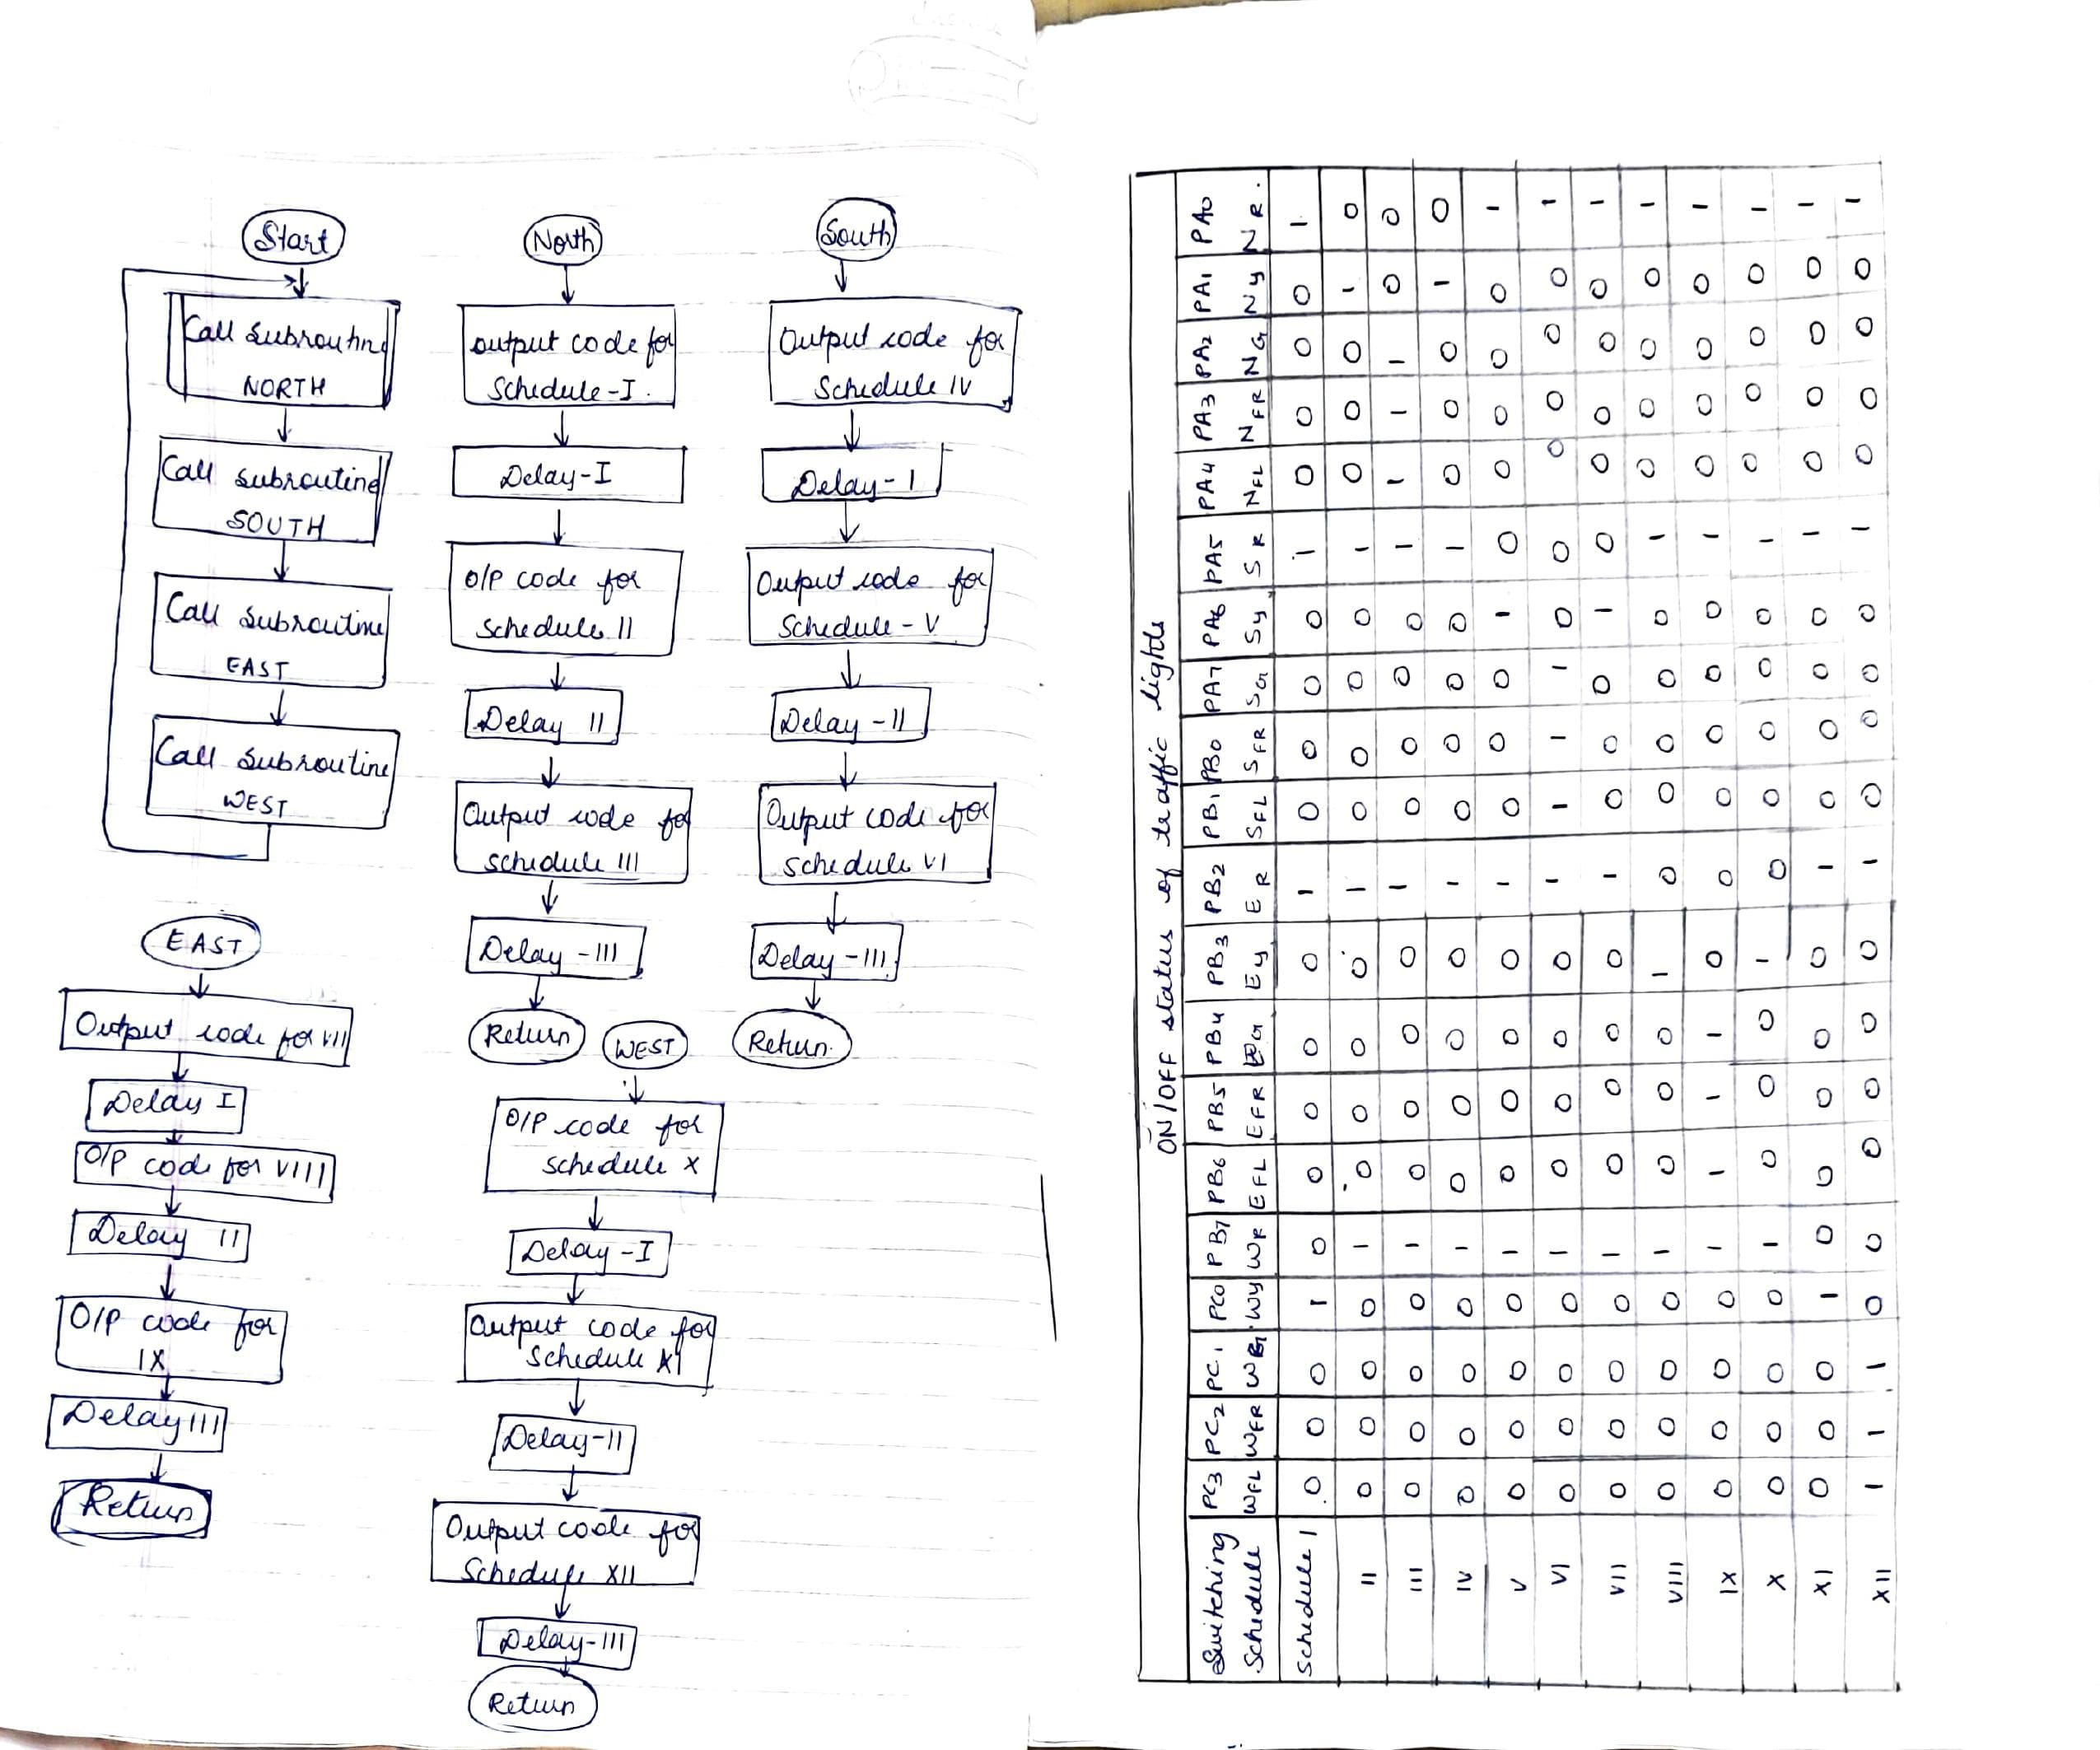 Start
Call Subroutine
NORTH
Call Subroutine
SOUTH
Call Subroutine
EAST
Call Subroutine
WEST
North
output code for
Schedule-I.
Delay-I
O/P code for
schedule II
Delay II
Output code for
schedule III
Delay-III
Return
South
Output code for
Schedule IV
Delay-I
Output code for
Schedule-V
Delay-II
Output code for
schedule VI
Delay-III
Return
EAST
Output code for VII
Delay I
O/P code for VIII
Delay II
O/P code for
IX
Delay III
Return
WEST
O/P code for
schedule X
Delay-I
Output code for
Schedule XI
Delay-II
Output code for
Schedule XII
Delay-III
Return
ON/OFF status of traffic lights
Switching PC3 PC2 PC1 PC0 PB7 PB6 PB5 PB4 PB3 PB2 PB1 PB0 PA7 PA6 PA5 PA4 PA3 PA2 PA1 PA0
Schedule WFL WFR WG Wy WR EFL EFR EG Ey ER SFL SFR SG Sy SR NFL NFR NG Ny NR.
Schedule I 0 0 0 1 0 0 0 0 0 1 0 0 0 0 1 0 0 0 0 1
II 0 0 0 0 1 0 0 0 0 1 0 0 0 0 1 0 0 0 1 0
III 0 0 0 0 1 0 0 0 0 1 0 0 0 0 1 1 1 1 0 0
IV 0 0 0 0 1 0 0 0 0 1 0 0 0 0 1 0 0 0 1 0
V 0 0 0 0 1 0 0 0 0 1 0 0 0 1 0 0 0 0 0 1
VI 0 0 0 0 1 0 0 0 0 1 1 1 1 0 0 0 0 0 0 1
VII 0 0 0 0 1 0 0 0 0 1 0 0 0 1 0 0 0 0 0 1
VIII 0 0 0 0 1 0 0 0 1 0 0 0 0 0 1 0 0 0 0 1
IX 0 0 0 0 1 1 1 1 0 0 0 0 0 0 1 0 0 0 0 1
X 0 0 0 0 1 0 0 0 1 0 0 0 0 0 1 0 0 0 0 1
XI 0 0 0 1 0 0 0 0 0 1 0 0 0 0 1 0 0 0 0 1
XII 1 1 1 0 0 0 0 0 0 1 0 0 0 0 1 0 0 0 0 1